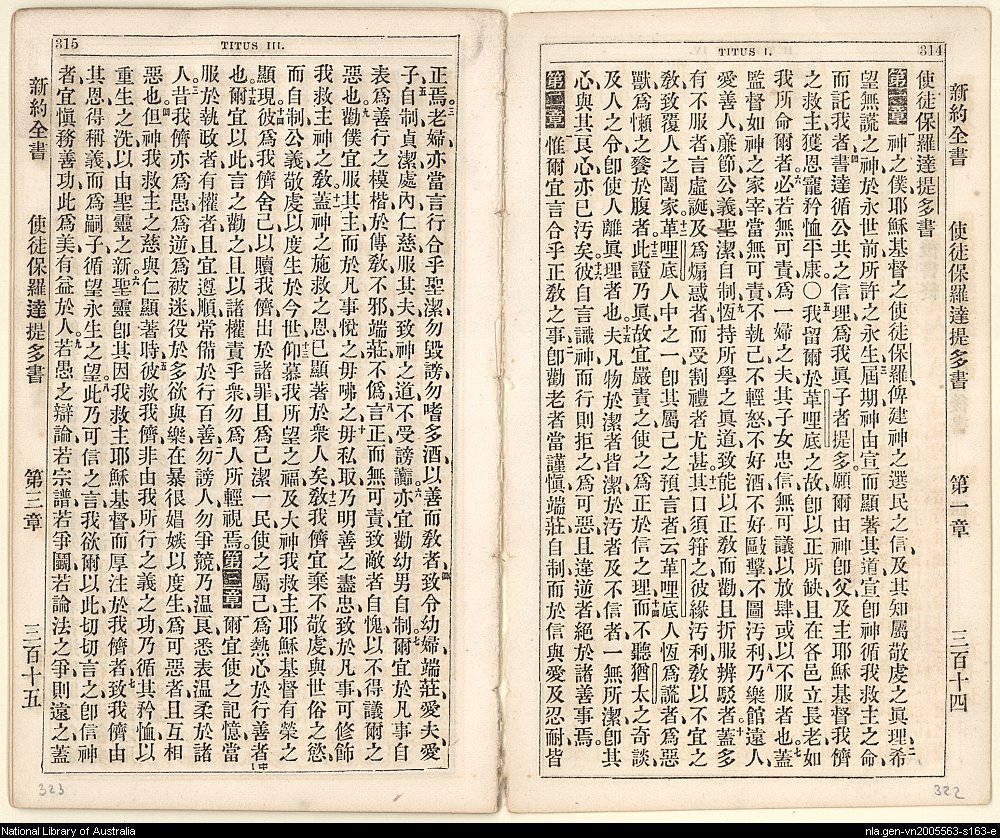 314
TITUS I.
新約全書 使徒保羅達提多書 第一章 三百十四
使徒保羅達提多書
第一章 神之僕耶穌基督之使徒保羅俾建神之選民之信及其知屬敬虔之眞理希
望無謊之神於永世前所許之永生屆期神由宣而顯著其道宣卽神循我救主之命
而託我者書達循公共之信理爲我眞子者提多願爾由神卽父及主耶穌基督我儕
之救主獲恩寵矜恤平康〇我留爾於革哩底之故卽以正所缺且在各邑立長老如
我所命爾者必若無可責爲一婦之夫其子女忠信無可議以放肆或以不服者也蓋
監督如神之家宰當無可責不執己不輕怒不好酒不好毆擊不圖汚利乃樂館遠人
愛善人廉節公義聖潔自制恆持所學之眞道致能以正敎而勸且折服辨駁者蓋多
有不服者言虛誕及爲煽惑者而受割禮者尤甚其口須箝之彼緣汚利敎以不宜之
敎致覆人之闔家革哩底人中之一卽其屬己之預言者云革哩底人恆爲謊者爲惡
獸爲懶之饕於腹者此證乃眞故宜嚴責之使之爲正於信之理而不聽猶太之奇談
及人之令卽使人離眞理者也夫凡物於潔者皆潔於汚者及不信者一無所潔卽其
心與其良心亦已汚矣彼自言識神而行則拒之爲可惡且違逆者絕於諸善事焉
第二章 惟爾宜言合乎正敎之事卽勸老者當謹愼端莊自制而於信與愛及忍耐皆
322
315
TITUS III.
正焉老婦亦當言行合乎聖潔勿毀謗勿嗜多酒以善而敎者致令幼婦端莊愛夫愛
子自制貞潔處內仁慈服其夫致神之道不受謗讟亦宜勸幼男自制爾宜於凡事自
表爲善行之模楷於傳敎不邪端莊不僞言正而無可責致敵者自愧以不得議爾之
惡也勸僕宜服其主而於凡事悅之毋咈之毋私取乃明善之盡忠致於凡事可修飾
我救主神之敎蓋神之施救之恩已顯著於衆人矣敎我儕宜棄不敬虔與世俗之慾
而自制公義敬虔以度生於今世仰慕我所望之福及大神我救主耶穌基督有榮之
顯現彼爲我儕舍己以贖我儕出於諸罪且爲己潔一民使之屬己爲熱心於行善者
也爾宜以此言之勸之且以諸權責乎衆勿爲人所輕視焉第三章 爾宜使之記憶當
服於執政者有權者且宜遵順常備於行百善勿謗人勿爭競乃温良悉表温柔於諸
人昔我儕亦爲愚爲逆爲被迷役於多欲與樂在暴很媢嫉以度生爲可惡者且互相
惡也但神我救主之慈與仁顯著時彼救我儕非由我所行之義之功乃循其矜恤以
重生之洗以由聖靈之新聖靈卽其因我救主耶穌基督而厚注於我儕者致我儕由
其恩得稱義而爲嗣子循望永生之望此乃可信之言我欲爾以此切切言之卽信神
者宜愼務善功此爲美有益於人若愚之辯論若宗譜若爭鬭若論法之爭則遠之蓋
新約全書 使徒保羅達提多書 第三章 三百十五
323
National Library of Australia
nla.gen-vn2005563-s163-e